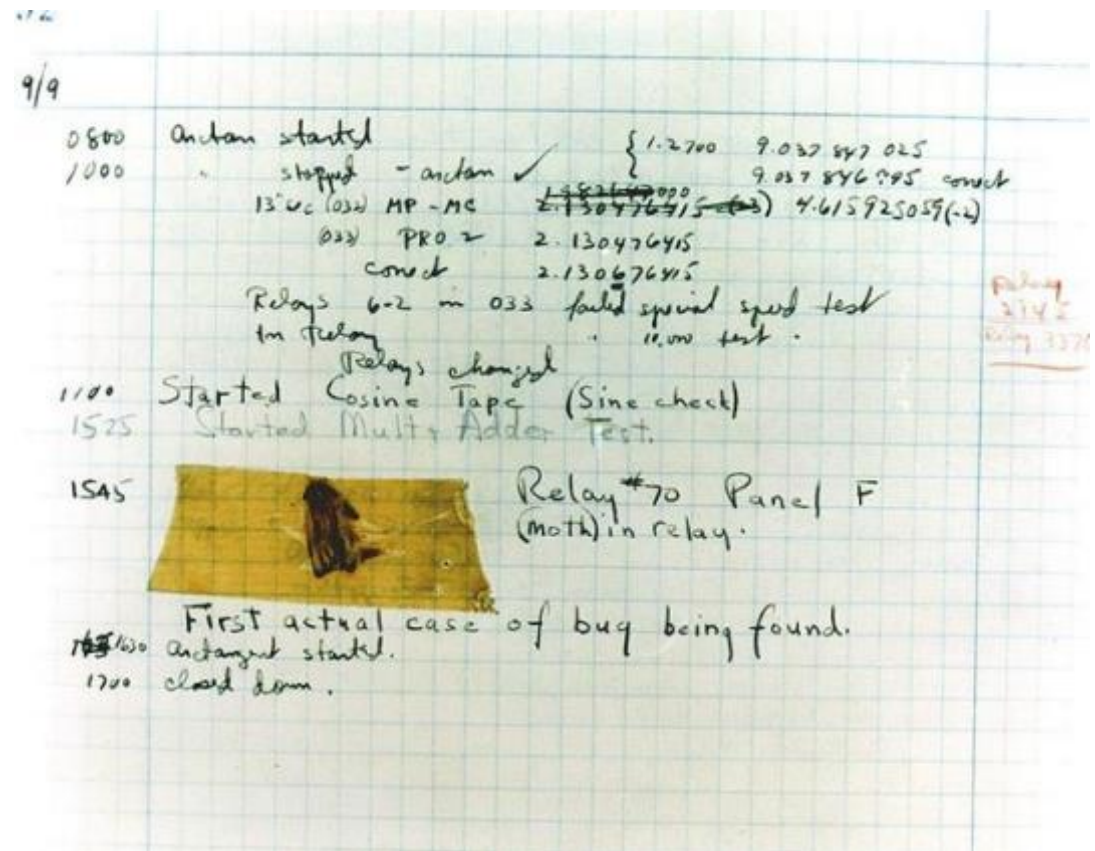 9/9
0800 arctan started { 1.2700 9.037 847 025
1000 " stopped - arctan ✓ 9.037 846 995 correct
13"uc (032) MP - MC 2.130476415 (-3) 4.615925059(-2)
(033) PRO 2 2.130476415
correct 2.130676415
Relays 6-2 in 033 failed special speed test
In Relay " 10,000 test "
Relay
2145
Relay 3370
Relays changed
1100 Started Cosine Tape (Sine check)
1525 Started Mult + Adder Test.
1545 Relay #70 Panel F
(moth) in relay.
First actual case of bug being found.
1630 arctangent started.
1700 closed down.